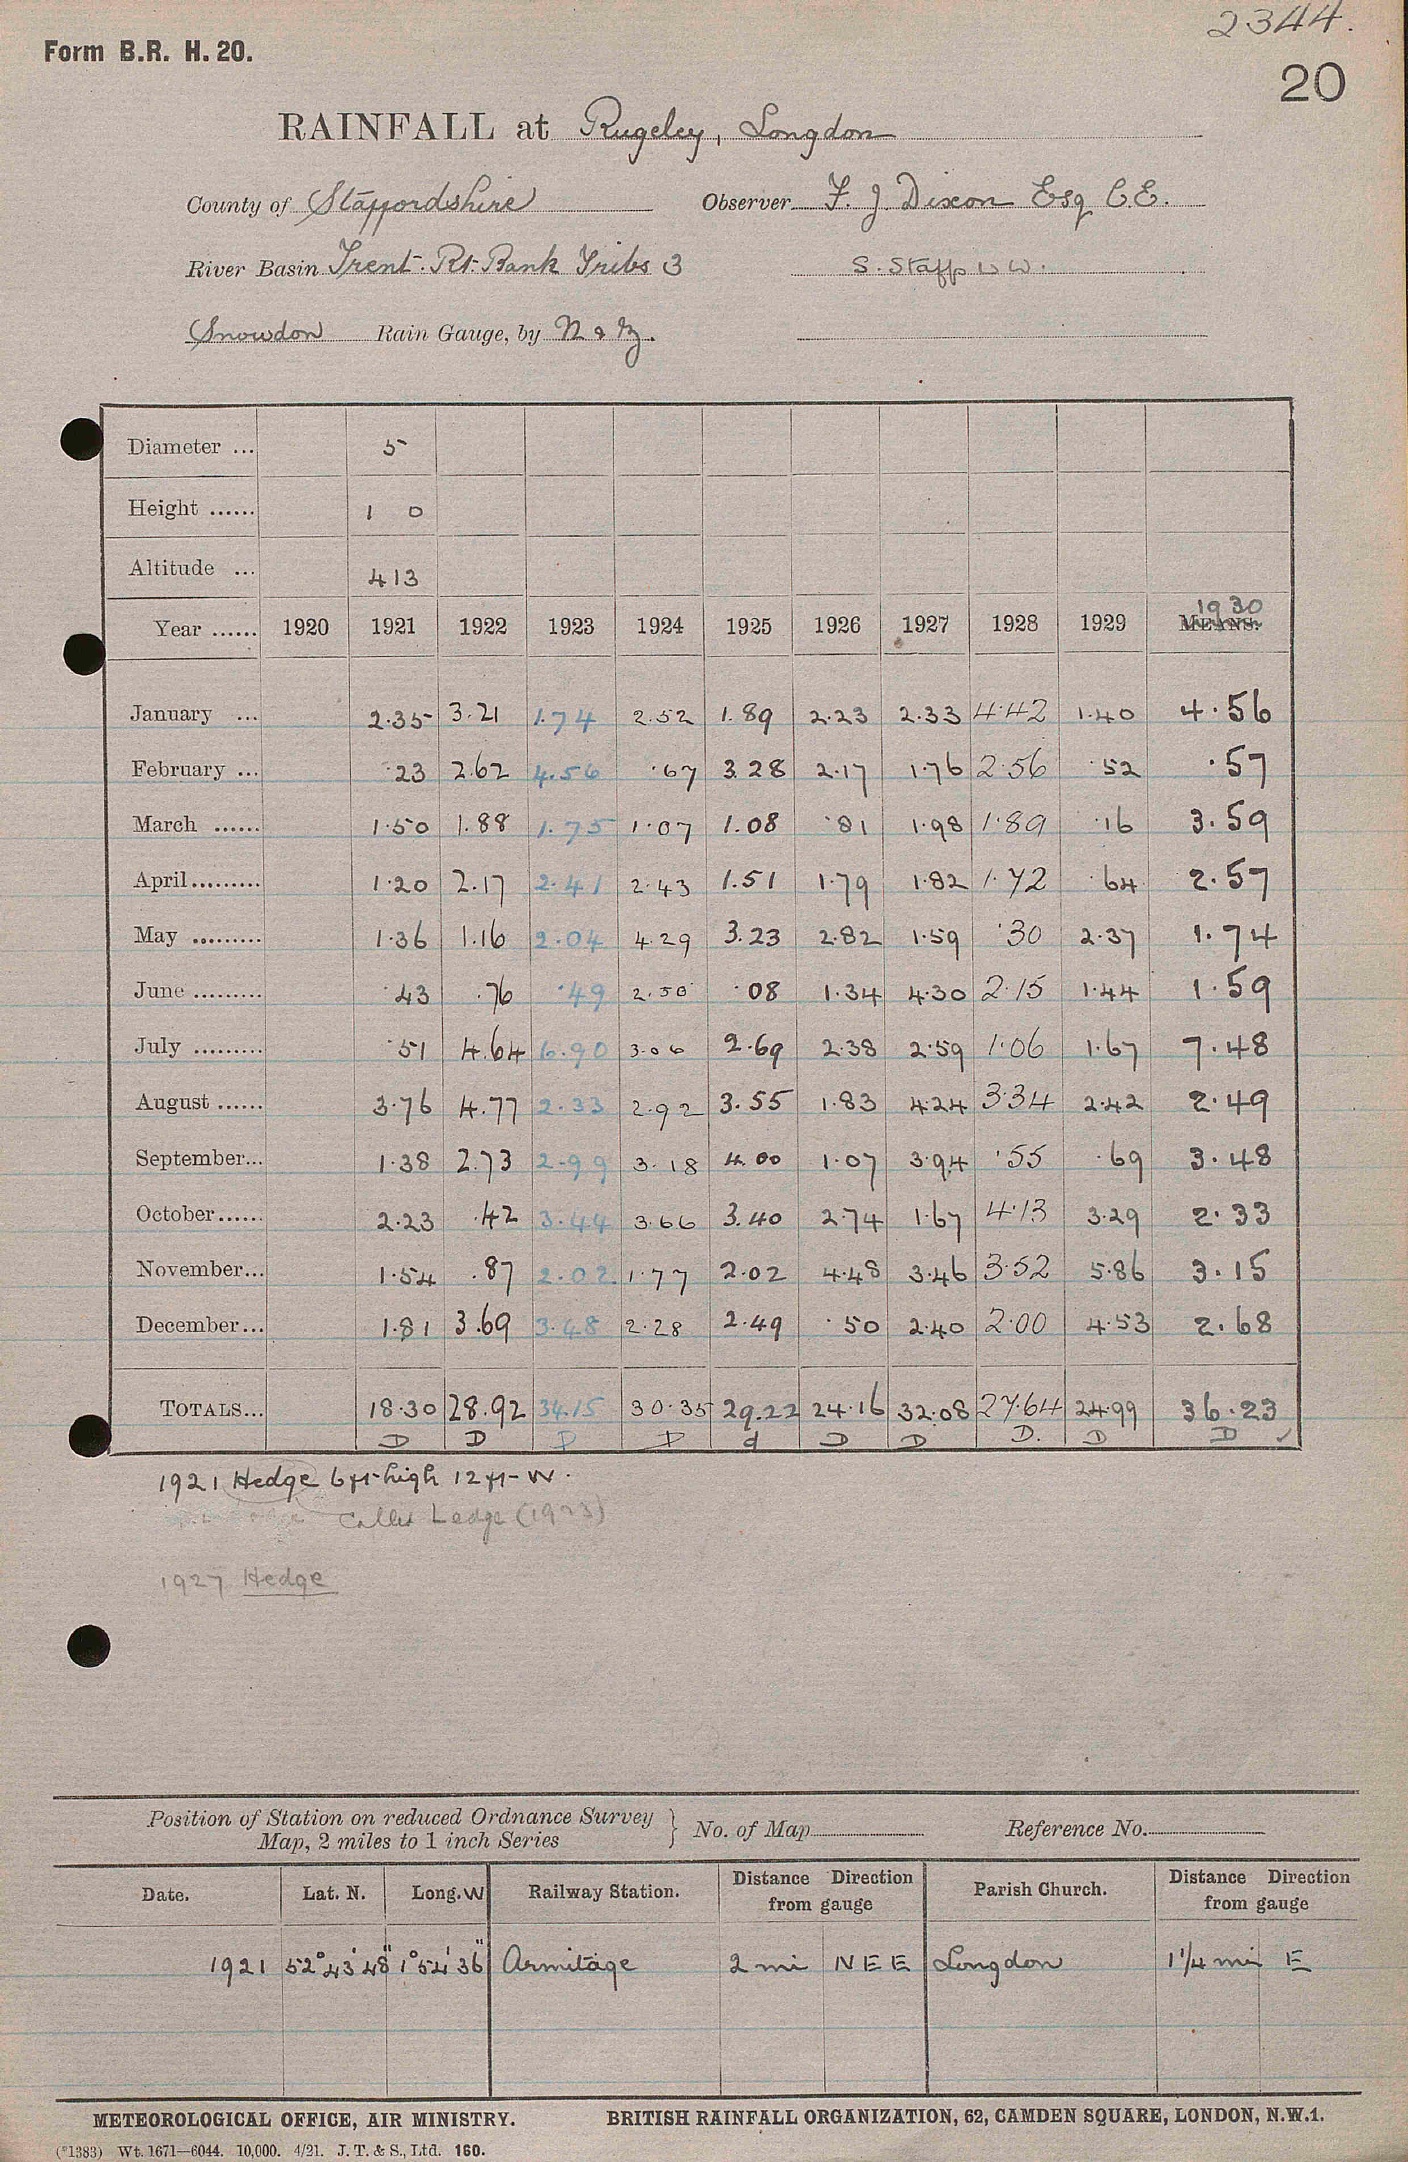 2344.
Form B.R. H. 20.
20
RAINFALL at Rugeley, Longdon
County of Staffordshire Observer F. J. Dixon Esq C.E.
River Basin Trent. Rt. Bank Tribs 3 S. Staffs W W.
Snowdon Rain Gauge, by N & Z.
Diameter ... 5
Height ...... 1 0
Altitude ... 413
1930
Year ...... 1920 1921 1922 1923 1924 1925 1926 1927 1928 1929 MEANS.
January ... 2.35 3.21 1.74 2.52 1.89 2.23 2.33 4.42 1.40 4.56
February ... .23 2.62 4.56 .67 3.28 2.17 1.76 2.56 .52 .57
March ...... 1.50 1.88 1.75 1.07 1.08 .81 1.98 1.89 .16 3.59
April......... 1.20 2.17 2.41 2.43 1.51 1.79 1.82 1.72 .64 2.57
May ......... 1.36 1.16 2.04 4.29 3.23 2.82 1.59 .30 2.37 1.74
June ......... .43 .76 .49 2.50 .08 1.34 4.30 2.15 1.44 1.59
July ......... .51 4.64 6.90 3.06 2.69 2.38 2.59 1.06 1.67 7.48
August ...... 3.76 4.77 2.33 2.92 3.55 1.83 4.24 3.34 2.42 2.49
September... 1.38 2.73 2.99 3.18 4.00 1.07 3.94 .55 .69 3.48
October...... 2.23 .42 3.44 3.66 3.40 2.74 1.67 4.13 3.29 2.33
November... 1.54 .87 2.02 1.77 2.02 4.48 3.46 3.52 5.86 3.15
December... 1.81 3.69 3.48 2.28 2.49 .50 2.40 2.00 4.53 2.68
TOTALS... 18.30 28.92 34.15 30.35 29.22 24.16 32.08 27.64 24.99 36.23
D D D D d D D D. D D ✓
1921 Hedge 6ft high 12 ft W.
Called Ledge (1923)
1927 Hedge
Position of Station on reduced Ordnance Survey
Map, 2 miles to 1 inch Series } No. of Map Reference No.
Date. Lat. N. Long. W Railway Station. Distance Direction from gauge Parish Church. Distance Direction from gauge
1921 52° 43' 48" 1° 54' 36" Armitage 2 mi N E E Longdon 1 1/4 mi E
METEOROLOGICAL OFFICE, AIR MINISTRY. BRITISH RAINFALL ORGANIZATION, 62, CAMDEN SQUARE, LONDON, N.W.1.
(*1383) Wt. 1671—6044. 10,000. 4/21. J. T. & S., Ltd. 160.